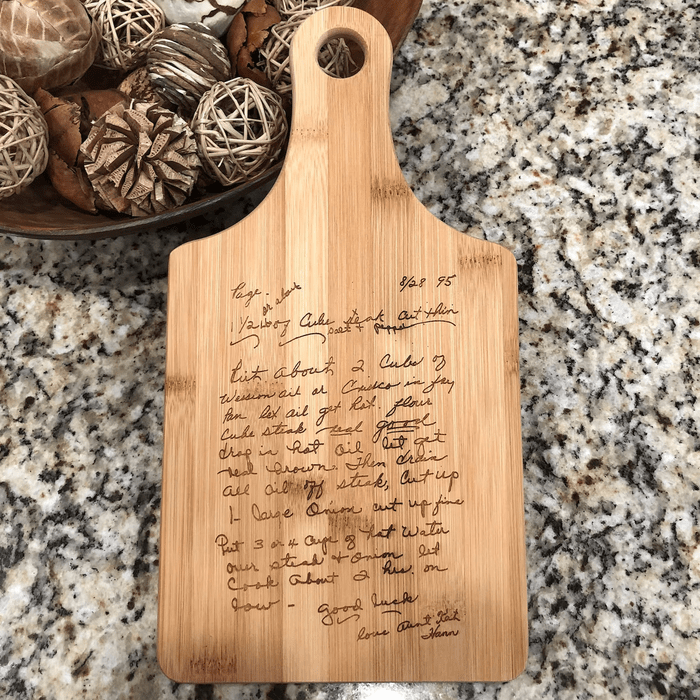 Page. 8/28 95
or about
1 1/2 lb of Cube steak cut thin
salt + pepper
Put about 2 Cube of
Wession oil or Crisco in fry
Pan let oil get hot. flour
Cube steak real good
drop in hot oil let get
real brown. Then drain
all oil off steak, cut up
1- large Onion cut up fine
Put 3 or 4 Cups of hot Water
over steak & onion let
Cook about 2 hrs. on
low - good luck
love Aunt
Hann